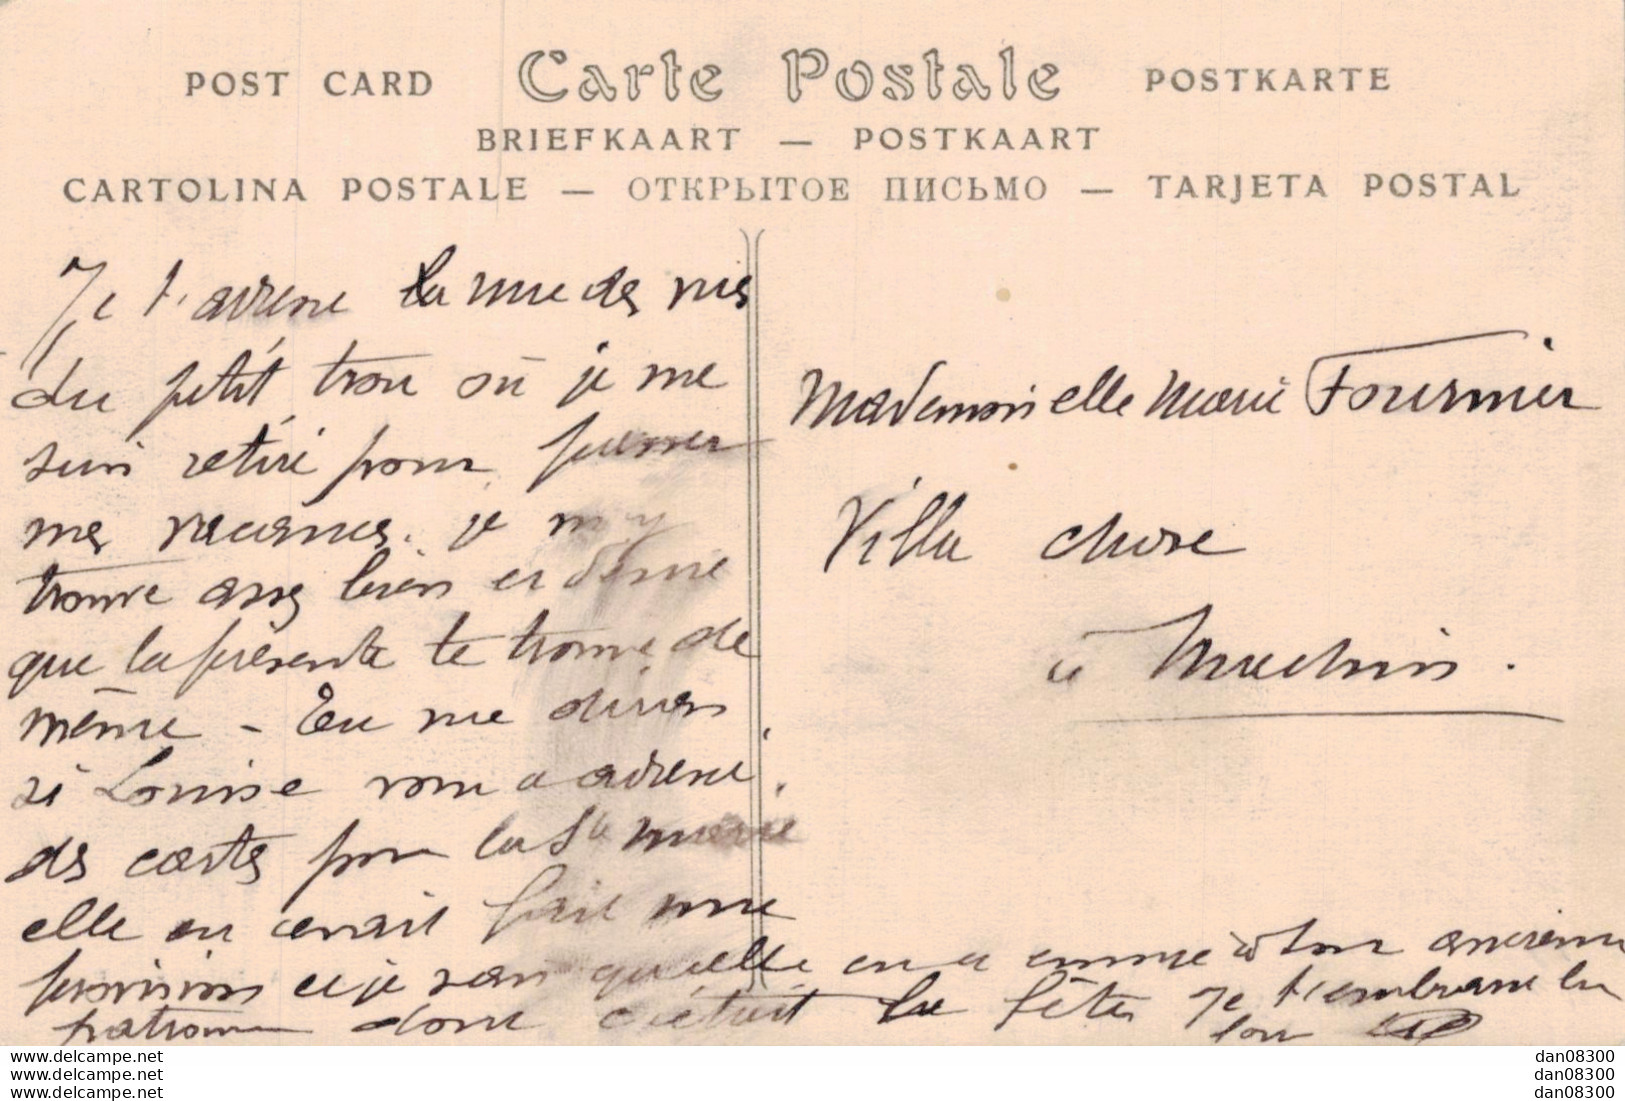 POST CARD Carte Postale POSTKARTE
BRIEFKAART — POSTKAART
CARTOLINA POSTALE — ОТКРЫТОЕ ПИСЬМО — TARJETA POSTAL
Je t'adresse la vue des
du petit trou où je me
suis retiré pour passer
mes vacances. je m'y
trouve assez bien et désire
que la présente te trouve de
même - Tu me diras
si Louise vous a adressé
des cartes pour la Ste Marie
elle en avait fait une
provision et je sais qu'elle en a envoyé à ton ancienne
patronne dont c'était la fête Je t'embrasse
ton
Mademoiselle Marie Fournier
Villa chose
à Machin.
www.delcampe.net
www.delcampe.net
www.delcampe.net
dan08300
dan08300
dan08300